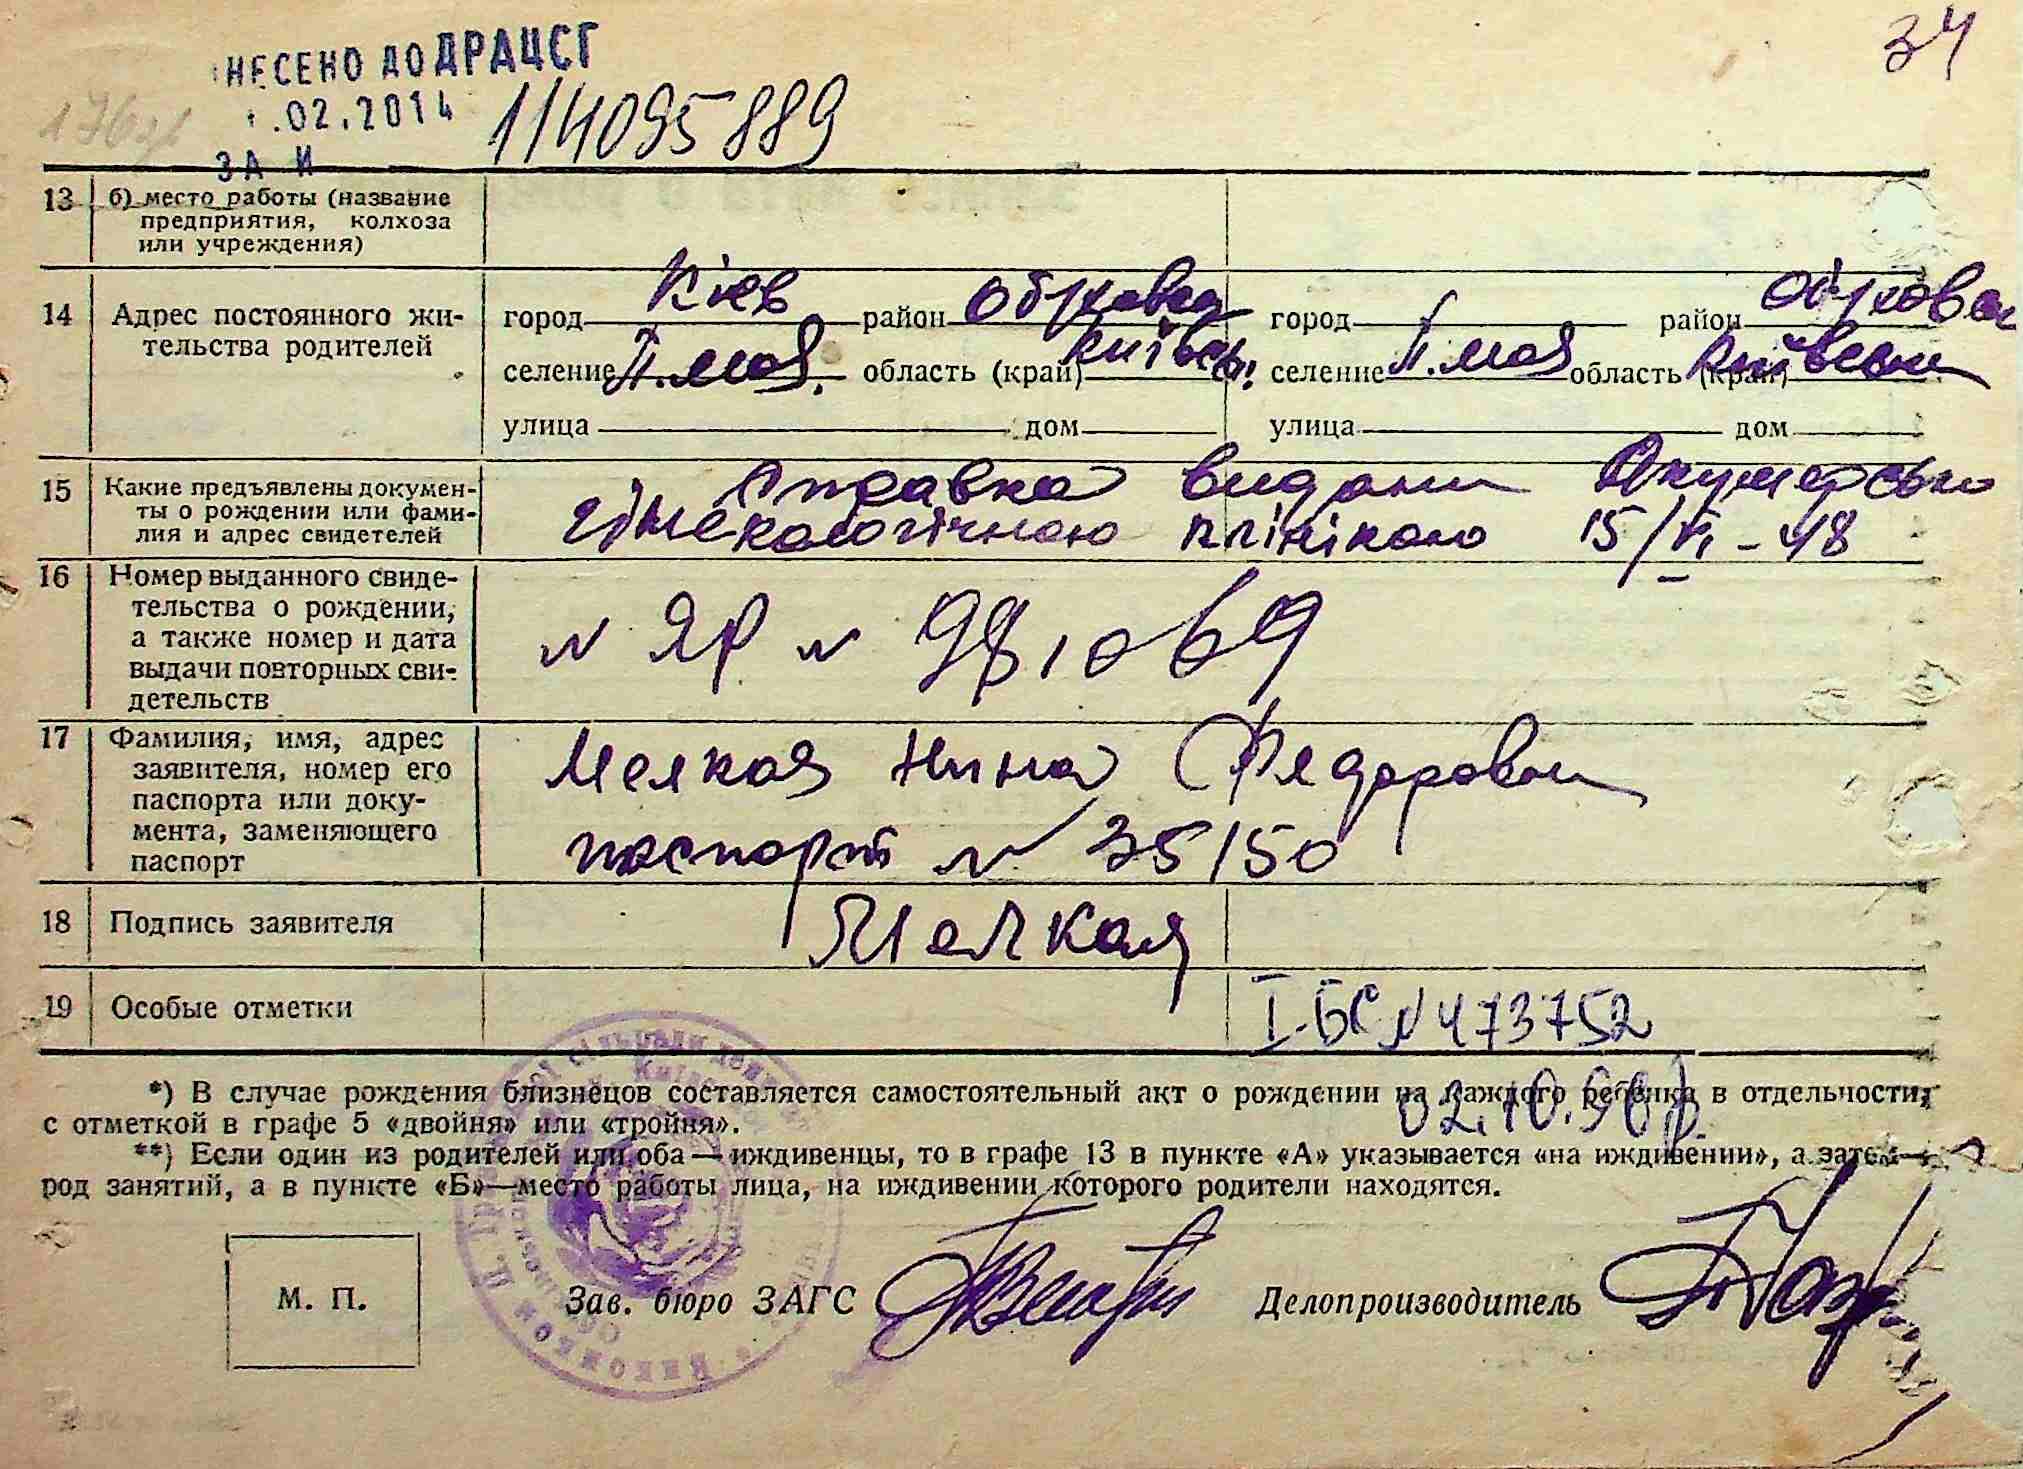 34
НЕСЕНО ДО ДРАЦСГ
.02.2014 114095889
176
ЗА И
13 б) место работы (название
предприятия, колхоза
или учреждения)
14 Адрес постоянного жи-
тельства родителей
город Київ район Обухівськ город район Обухов
селение П.мая. область (край) київськ селение П.мая область (край) київськ
улица дом улица дом
15 Какие предъявлены докумен-
ты о рождении или фами-
лия и адрес свидетелей
Справка видана Якушерсько
гінекологічною клінікою 15/VI-48
16 Номер выданного свиде-
тельства о рождении,
а также номер и дата
выдачи повторных сви-
детельств
№ ЯР № 981069
17 Фамилия, имя, адрес
заявителя, номер его
паспорта или доку-
мента, заменяющего
паспорт
Мелкая Нина Федоровна
паспорт № 35150
18 Подпись заявителя Мелкая
19 Особые отметки I-БС № 473752
02.10.90р.
*) В случае рождения близнецов составляется самостоятельный акт о рождении на каждого ребенка в отдельности,
с отметкой в графе 5 «двойня» или «тройня».
**) Если один из родителей или оба—иждивенцы, то в графе 13 в пункте «А» указывается «на иждивении», а затем—
род занятий, а в пункте «Б»—место работы лица, на иждивении которого родители находятся.
М. П.
Зав. бюро ЗАГС Делопроизводитель